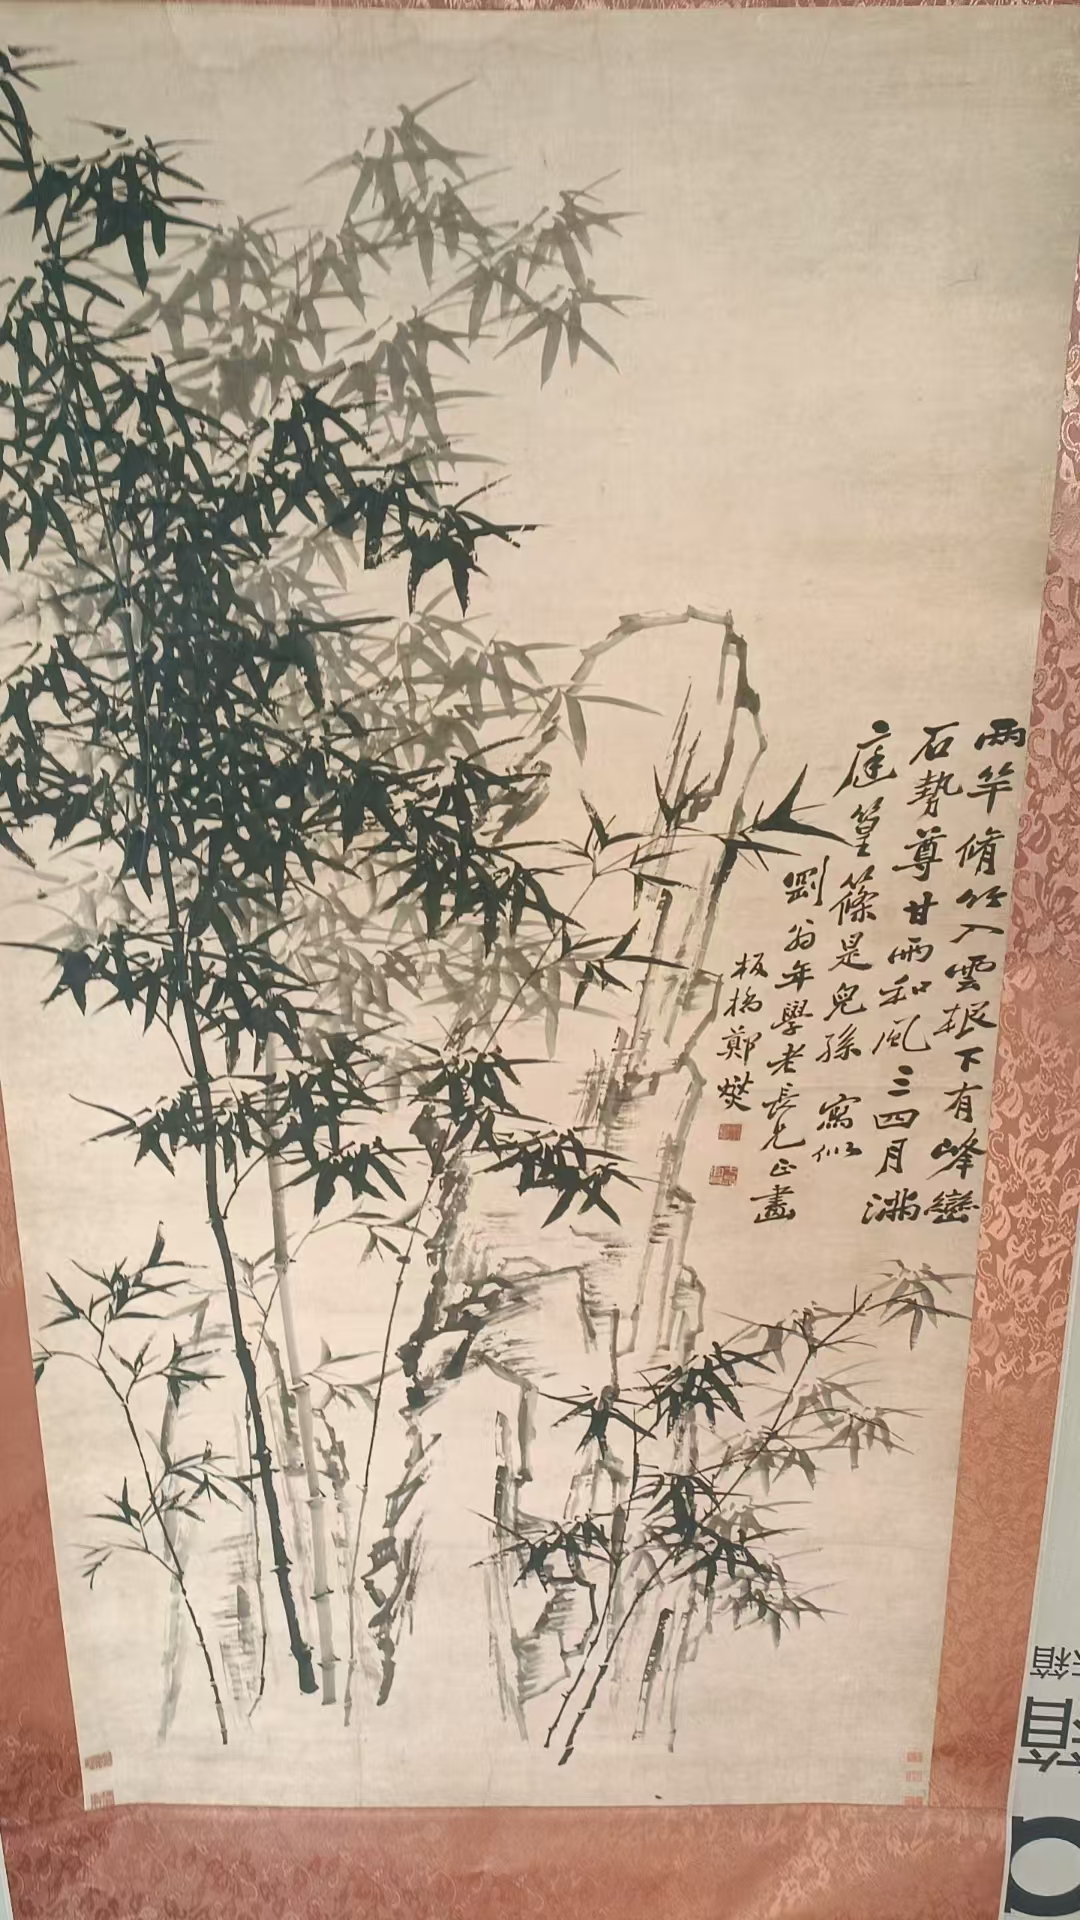 兩竿脩竹入雲根下有峰巒
石勢尊甘雨和風三四月滿
庭篁篠是兒孫 寫似
劉翁年學老長兄正畫
板橋鄭燮
箱